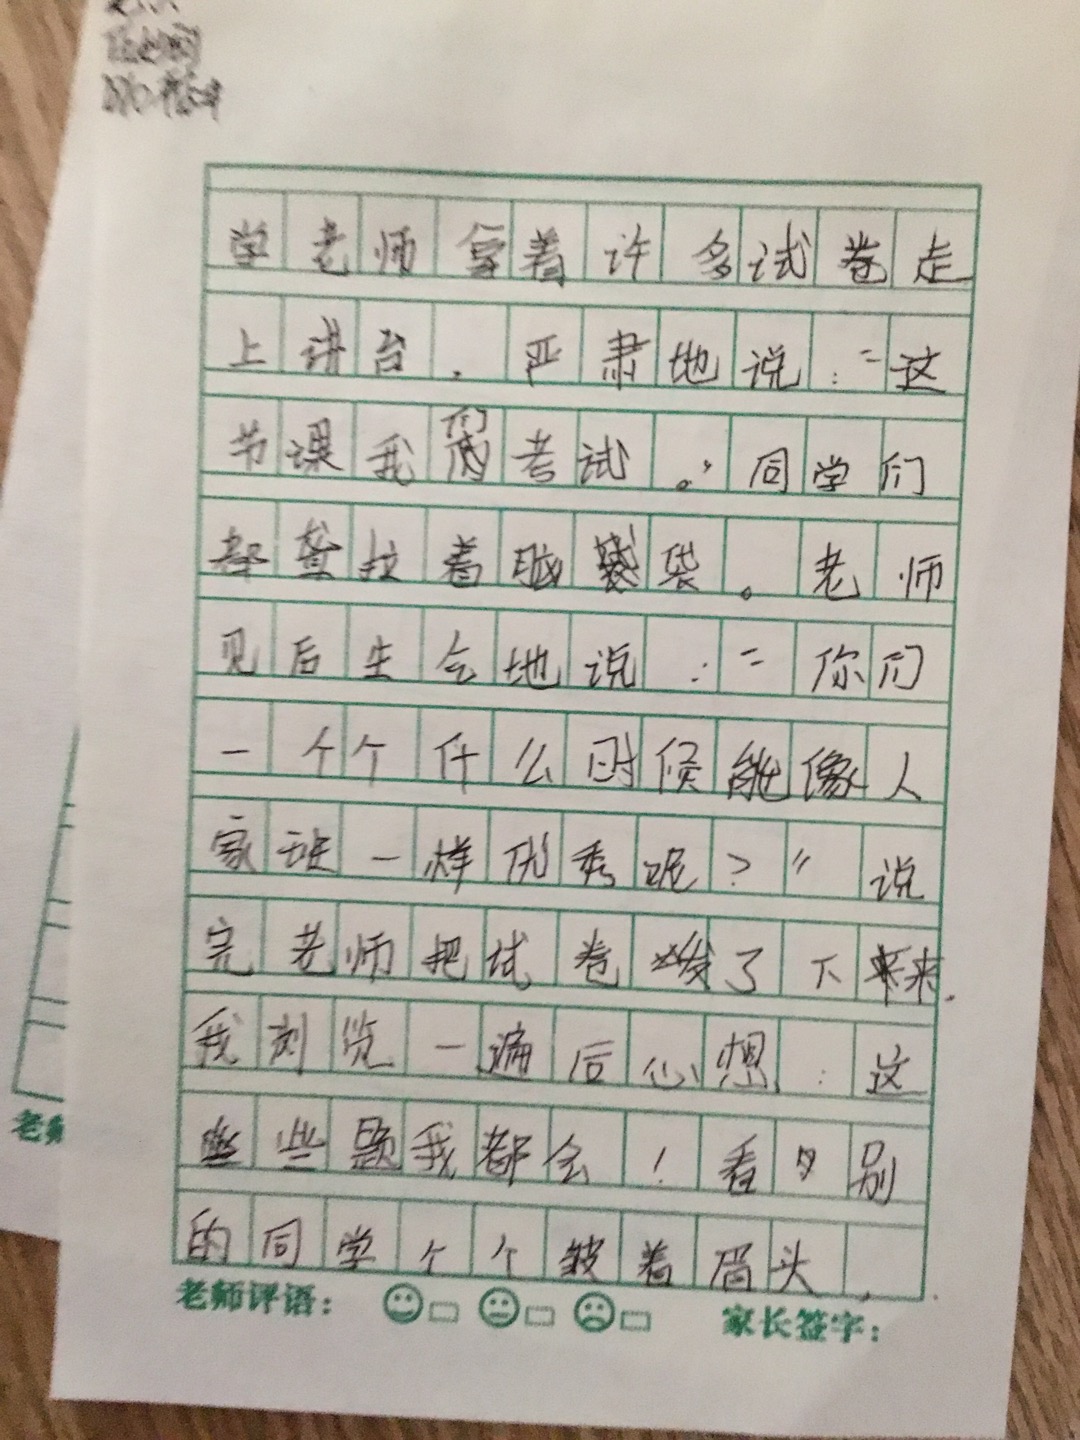 学老师拿着许多试卷走
上讲台，严肃地说：“这
节课我们考试。”同学们
都耷拉着脑袋。老师
见后生气地说：“你们
一个个什么时候能像人
家班一样优秀呢？”说
完老师把试卷发了下来，
我浏览一遍后心想：这
些题我都会！看别
的同学个个皱着眉头，
老师评语： 家长签字：
老师